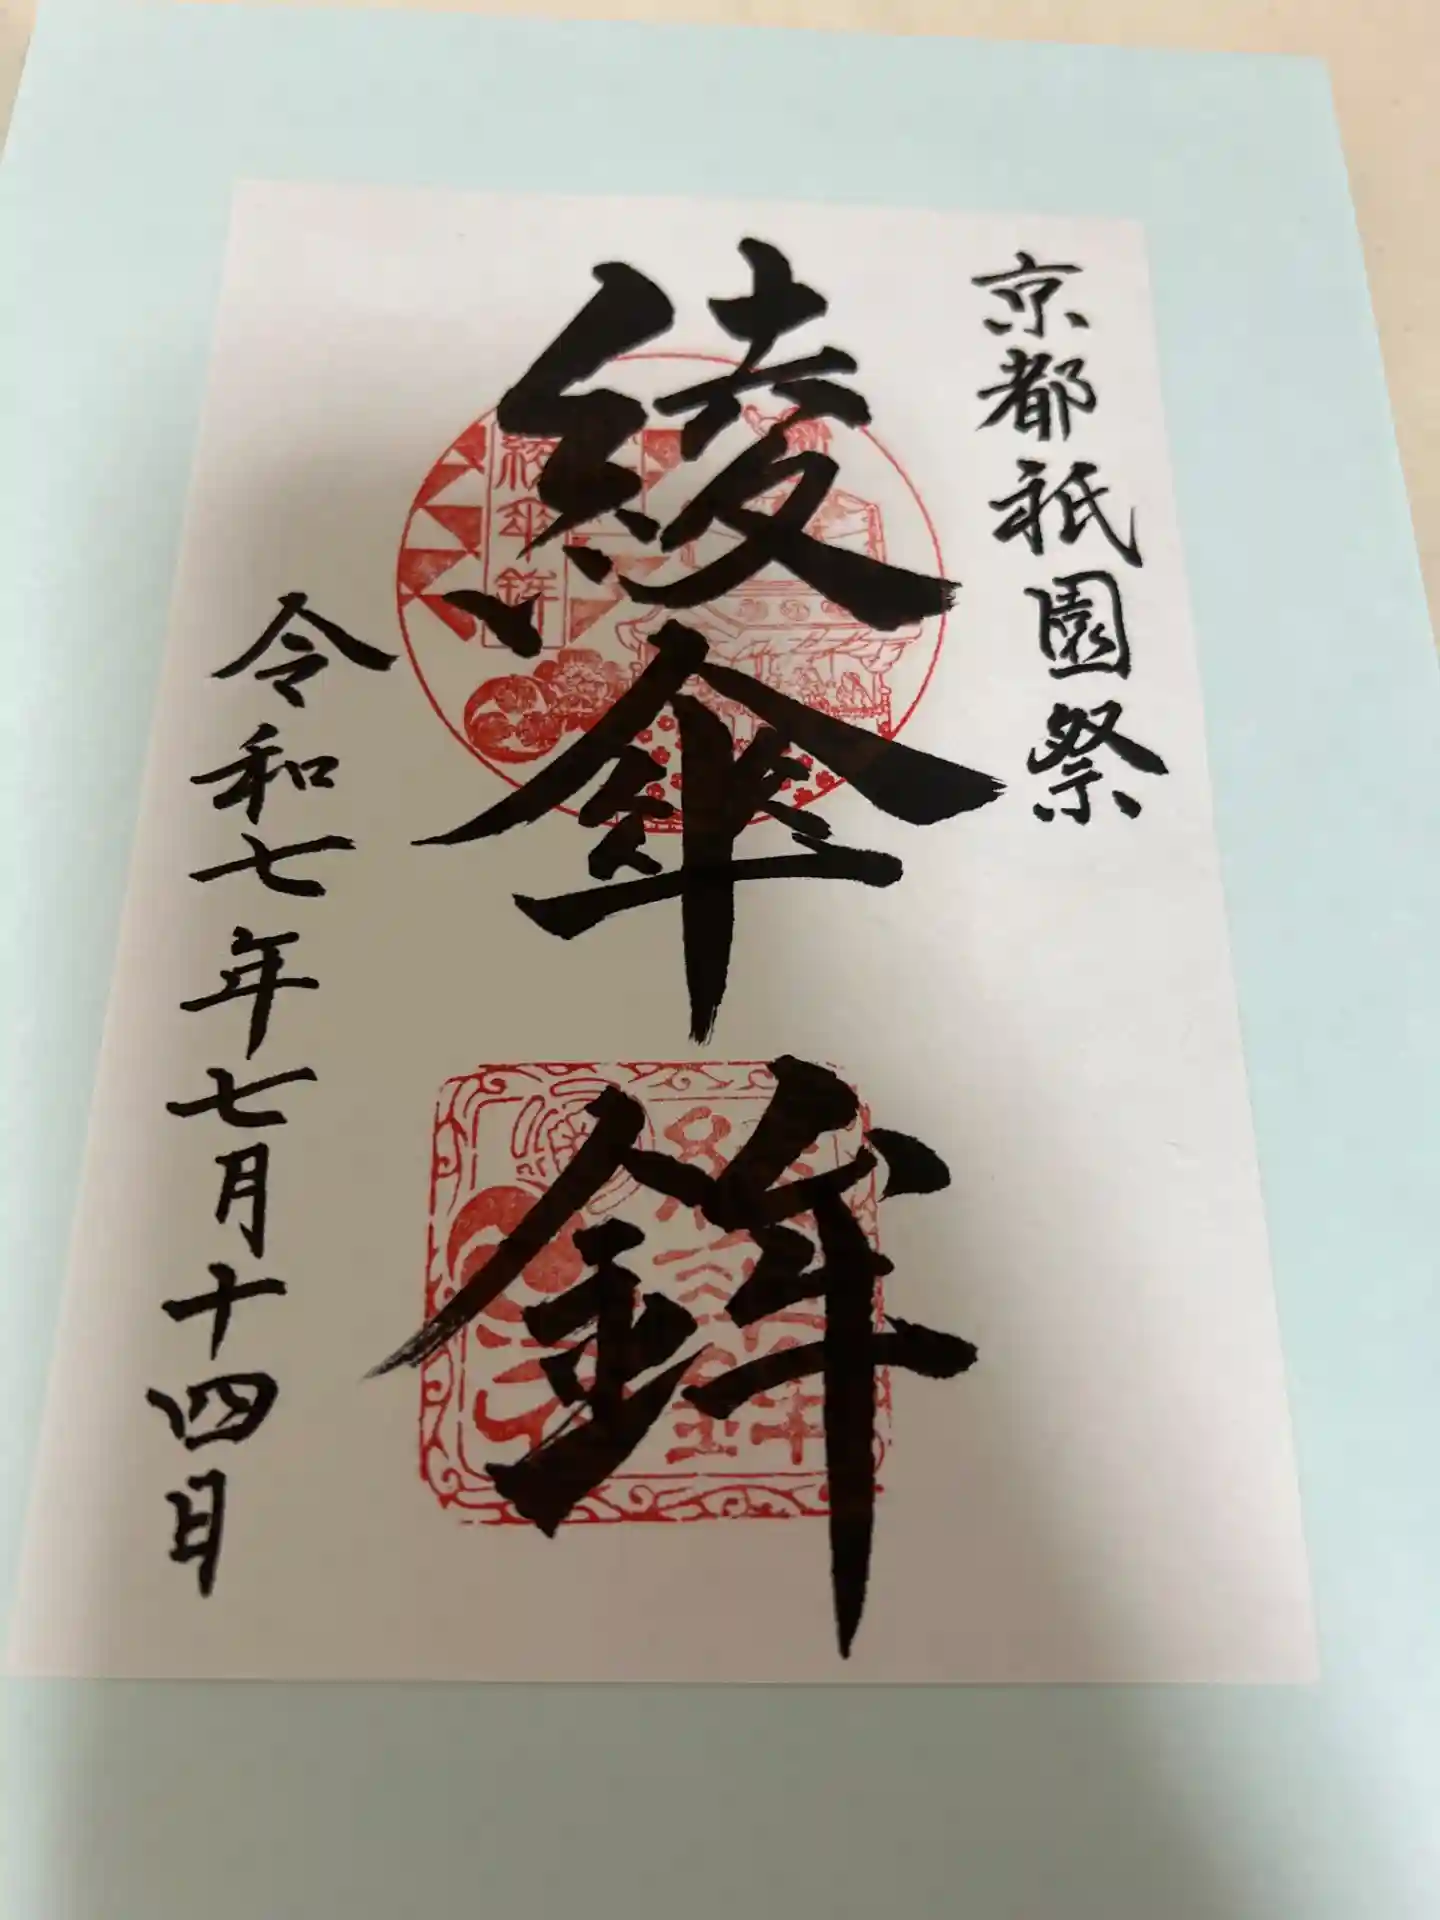 京都祇園祭
綾傘鉾
令和七年七月十四日
綾傘鉾
綾傘鉾